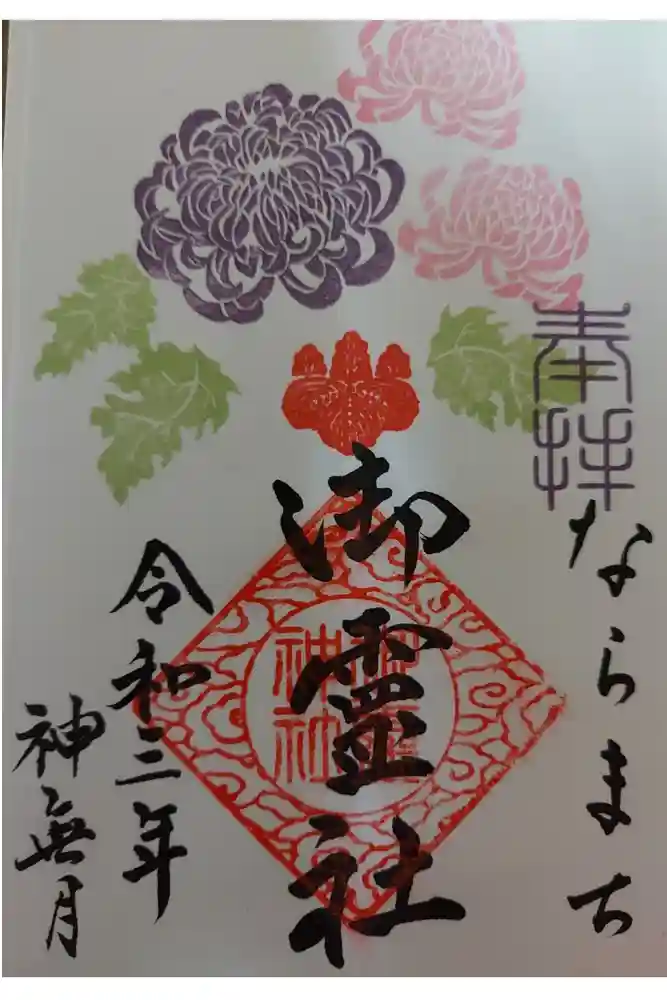 奉拝
ならまち
御霊社
令和三年
神無月